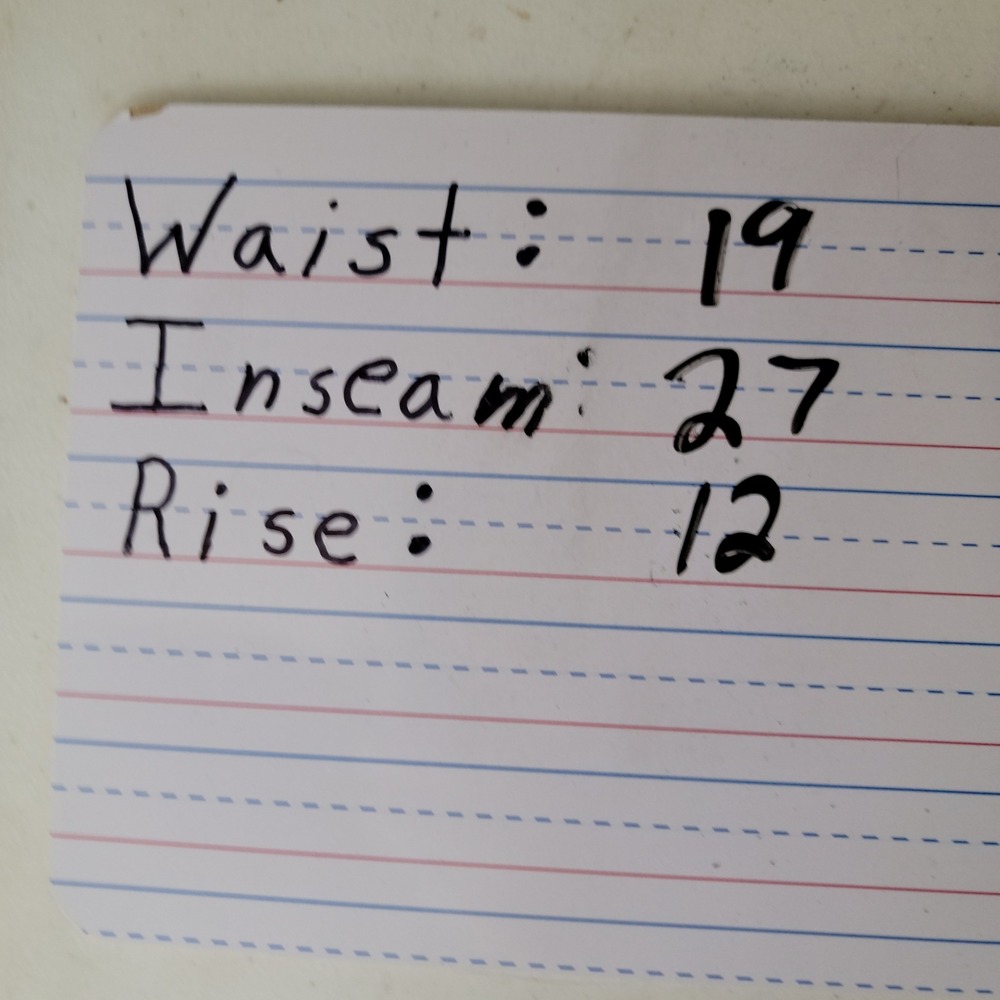 Waist: 19
Inseam: 27
Rise: 12